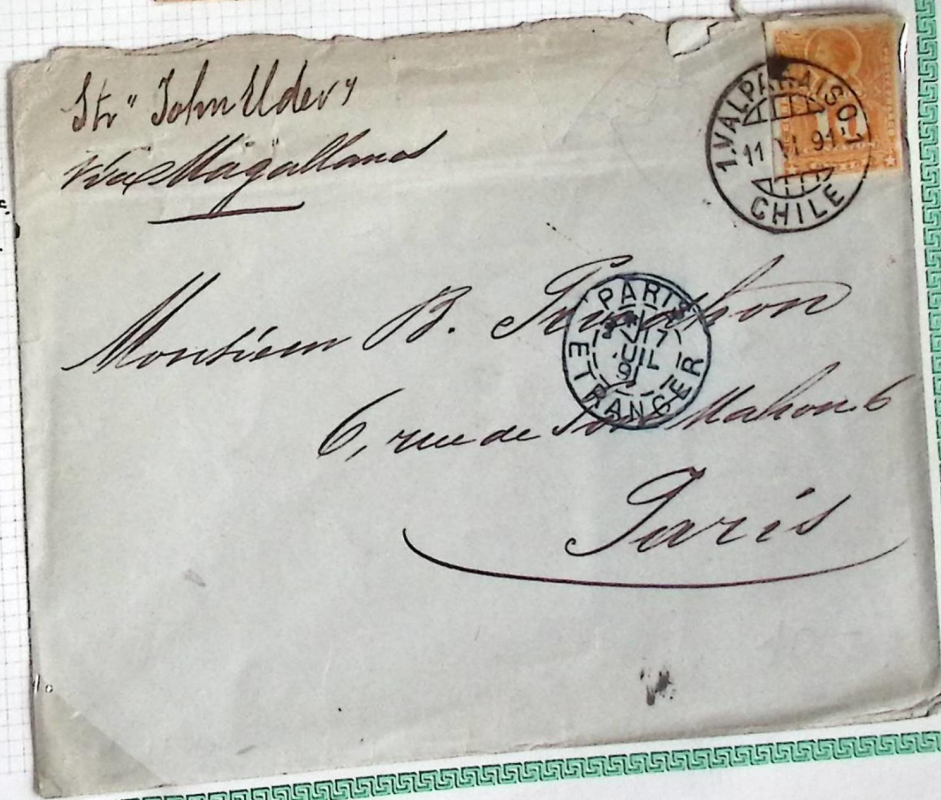 Str "John Elder"
via Magallanes
1. VALPARAISO. 1
11 VI 91
CHILE
Monsieur B.
PARIS
7
JUIL
91
ETRANGER
6, rue de Mac Mahon. 6
Paris